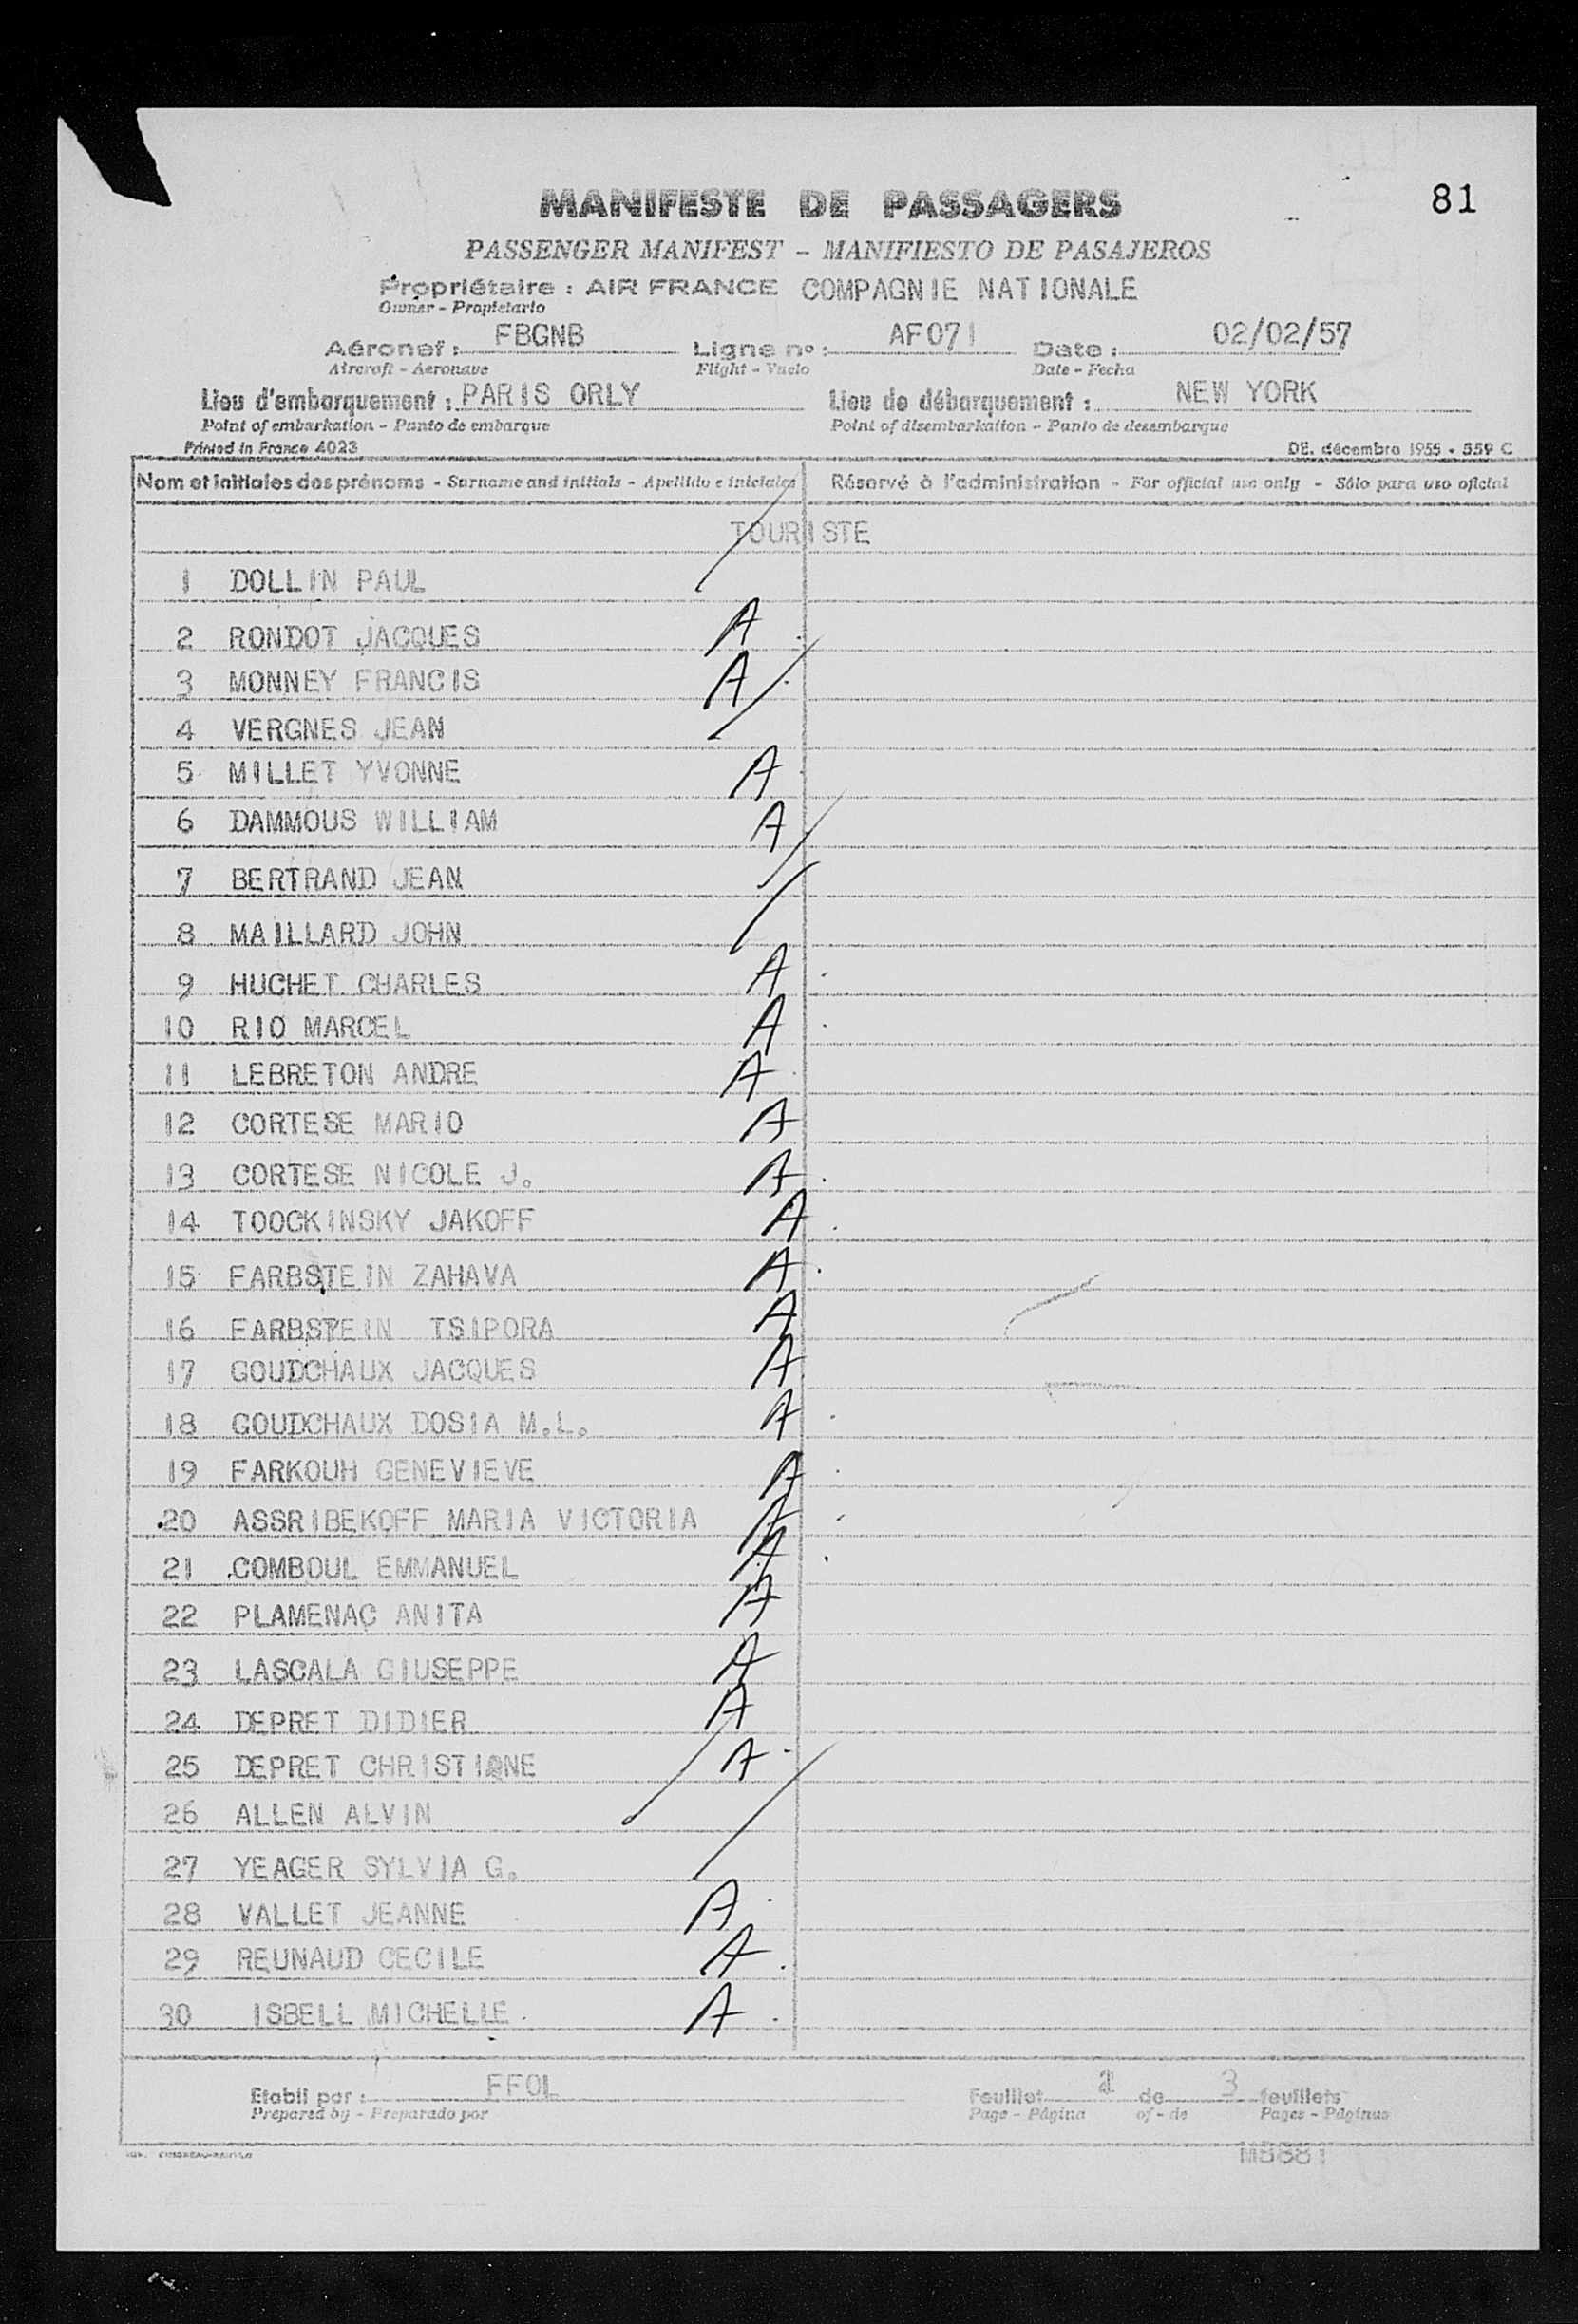 81
MANIFESTE DE PASSAGERS
PASSENGER MANIFEST - MANIFIESTO DE PASAJEROS
Propriétaire : AIR FRANCE COMPAGNIE NATIONALE
Owner - Propietario
Aéronef : FBGNB Ligne nº : AF071 Date : 02/02/57
Aircraft - Aeronave Flight - Vuelo Date - Fecha
Lieu d'embarquement : PARIS ORLY Lieu de débarquement : NEW YORK
Point of embarkation - Punto de embarque Point of disembarkation - Punto de desembarque
Printed in France 4023 DE. décembre 1955 - 559 C
Nom et initiales des prénoms - Surname and initials - Apellido e iniciales Réservé à l'administration - For official use only - Sólo para uso oficial
TOURISTE
1 DOLLIN PAUL
2 RONDOT JACQUES A
3 MONNEY FRANCIS A
4 VERGNES JEAN
5 MILLET YVONNE A
6 DAMMOUS WILLIAM A
7 BERTRAND JEAN
8 MAILLARD JOHN
9 HUCHET CHARLES A
10 RIO MARCEL A
11 LEBRETON ANDRE A
12 CORTESE MARIO A
13 CORTESE NICOLE J. A
14 TOOCKINSKY JAKOFF A
15 FARBSTEIN ZAHAVA A
16 FARBSTEIN TSIPORA A
17 GOUDCHAUX JACQUES A
18 GOUDCHAUX DOSIA M.L. A
19 FARKOUH GENEVIEVE A
20 ASSRIBEKOFF MARIA VICTORIA A
21 COMBOUL EMMANUEL A
22 PLAMENAC ANITA A
23 LASCALA GIUSEPPE A
24 DEPRET DIDIER A
25 DEPRET CHRISTIANE A
26 ALLEN ALVIN
27 YEAGER SYLVIA G.
28 VALLET JEANNE A
29 REUNAUD CECILE A
30 ISBELL MICHELLE A
Etabli par : FFOL Feuillet de 3 feuillets
Prepared by - Preparado por Page - Página of - de Pages - Páginas